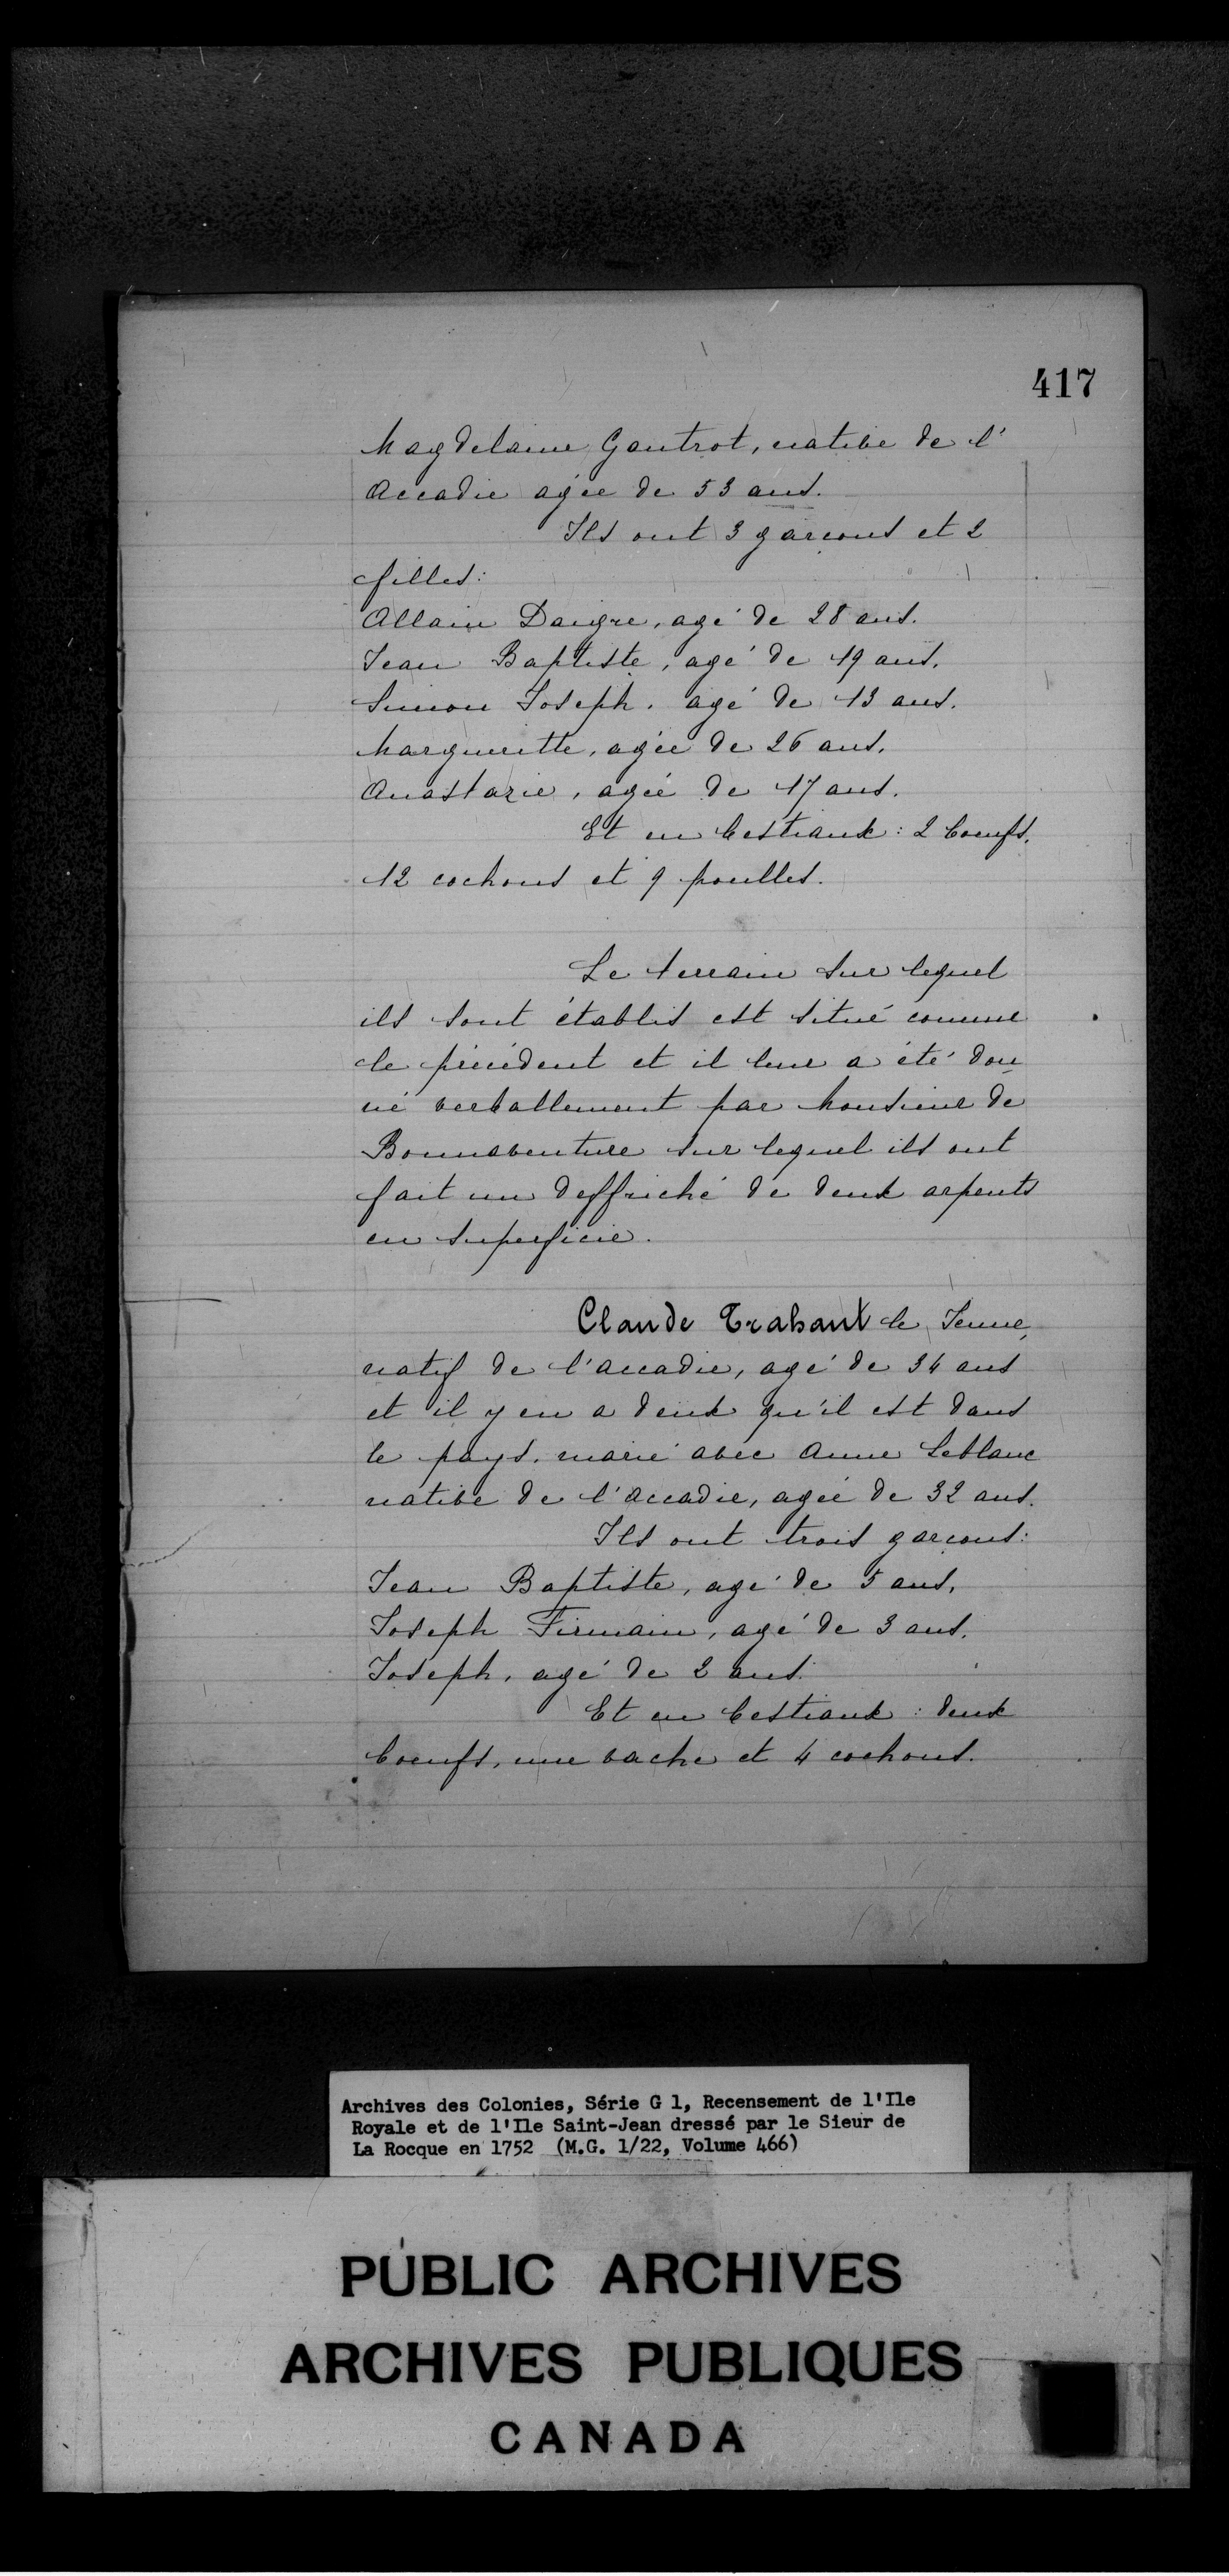 417
Magdelaine Gautrot, native de l'
Accadie agée de 53 ans.
Ils ont 3 garçons et 2
filles:
Allain Daigre, agé de 28 ans.
Jean Baptiste, agé de 19 ans.
Simon Joseph, agé de 13 ans.
Margueritte, agée de 26 ans.
Anastazie, agée de 17 ans.
Et en bestiaux: 2 boeufs,
12 cochons et 9 poulles.
Le terrain sur lequel
ils sont établis est situé comme
le précédent et il leur a été don
né verballement par Monsieur de
Bonnaventure sur lequel ils ont
fait un deffriché de deux arpents
en superficie.
Claude Trahant le Jeune,
natif de l'accadie, agé de 34 ans
et il y en a deux qu'il est dans
le pays, marié avec Anne Leblanc
native de l'accadie, agée de 32 ans.
Ils ont trois garçons:
Jean Baptiste, agé de 5 ans,
Joseph Firmain, agé de 3 ans,
Joseph, agé de 2 ans.
Et en bestiaux: deux
boeufs, une vache et 4 cochons.
Archives des Colonies, Série G 1, Recensement de l'Ile
Royale et de l'Ile Saint-Jean dressé par le Sieur de
La Rocque en 1752 (M.G. 1/22, Volume 466)
PUBLIC ARCHIVES
ARCHIVES PUBLIQUES
CANADA